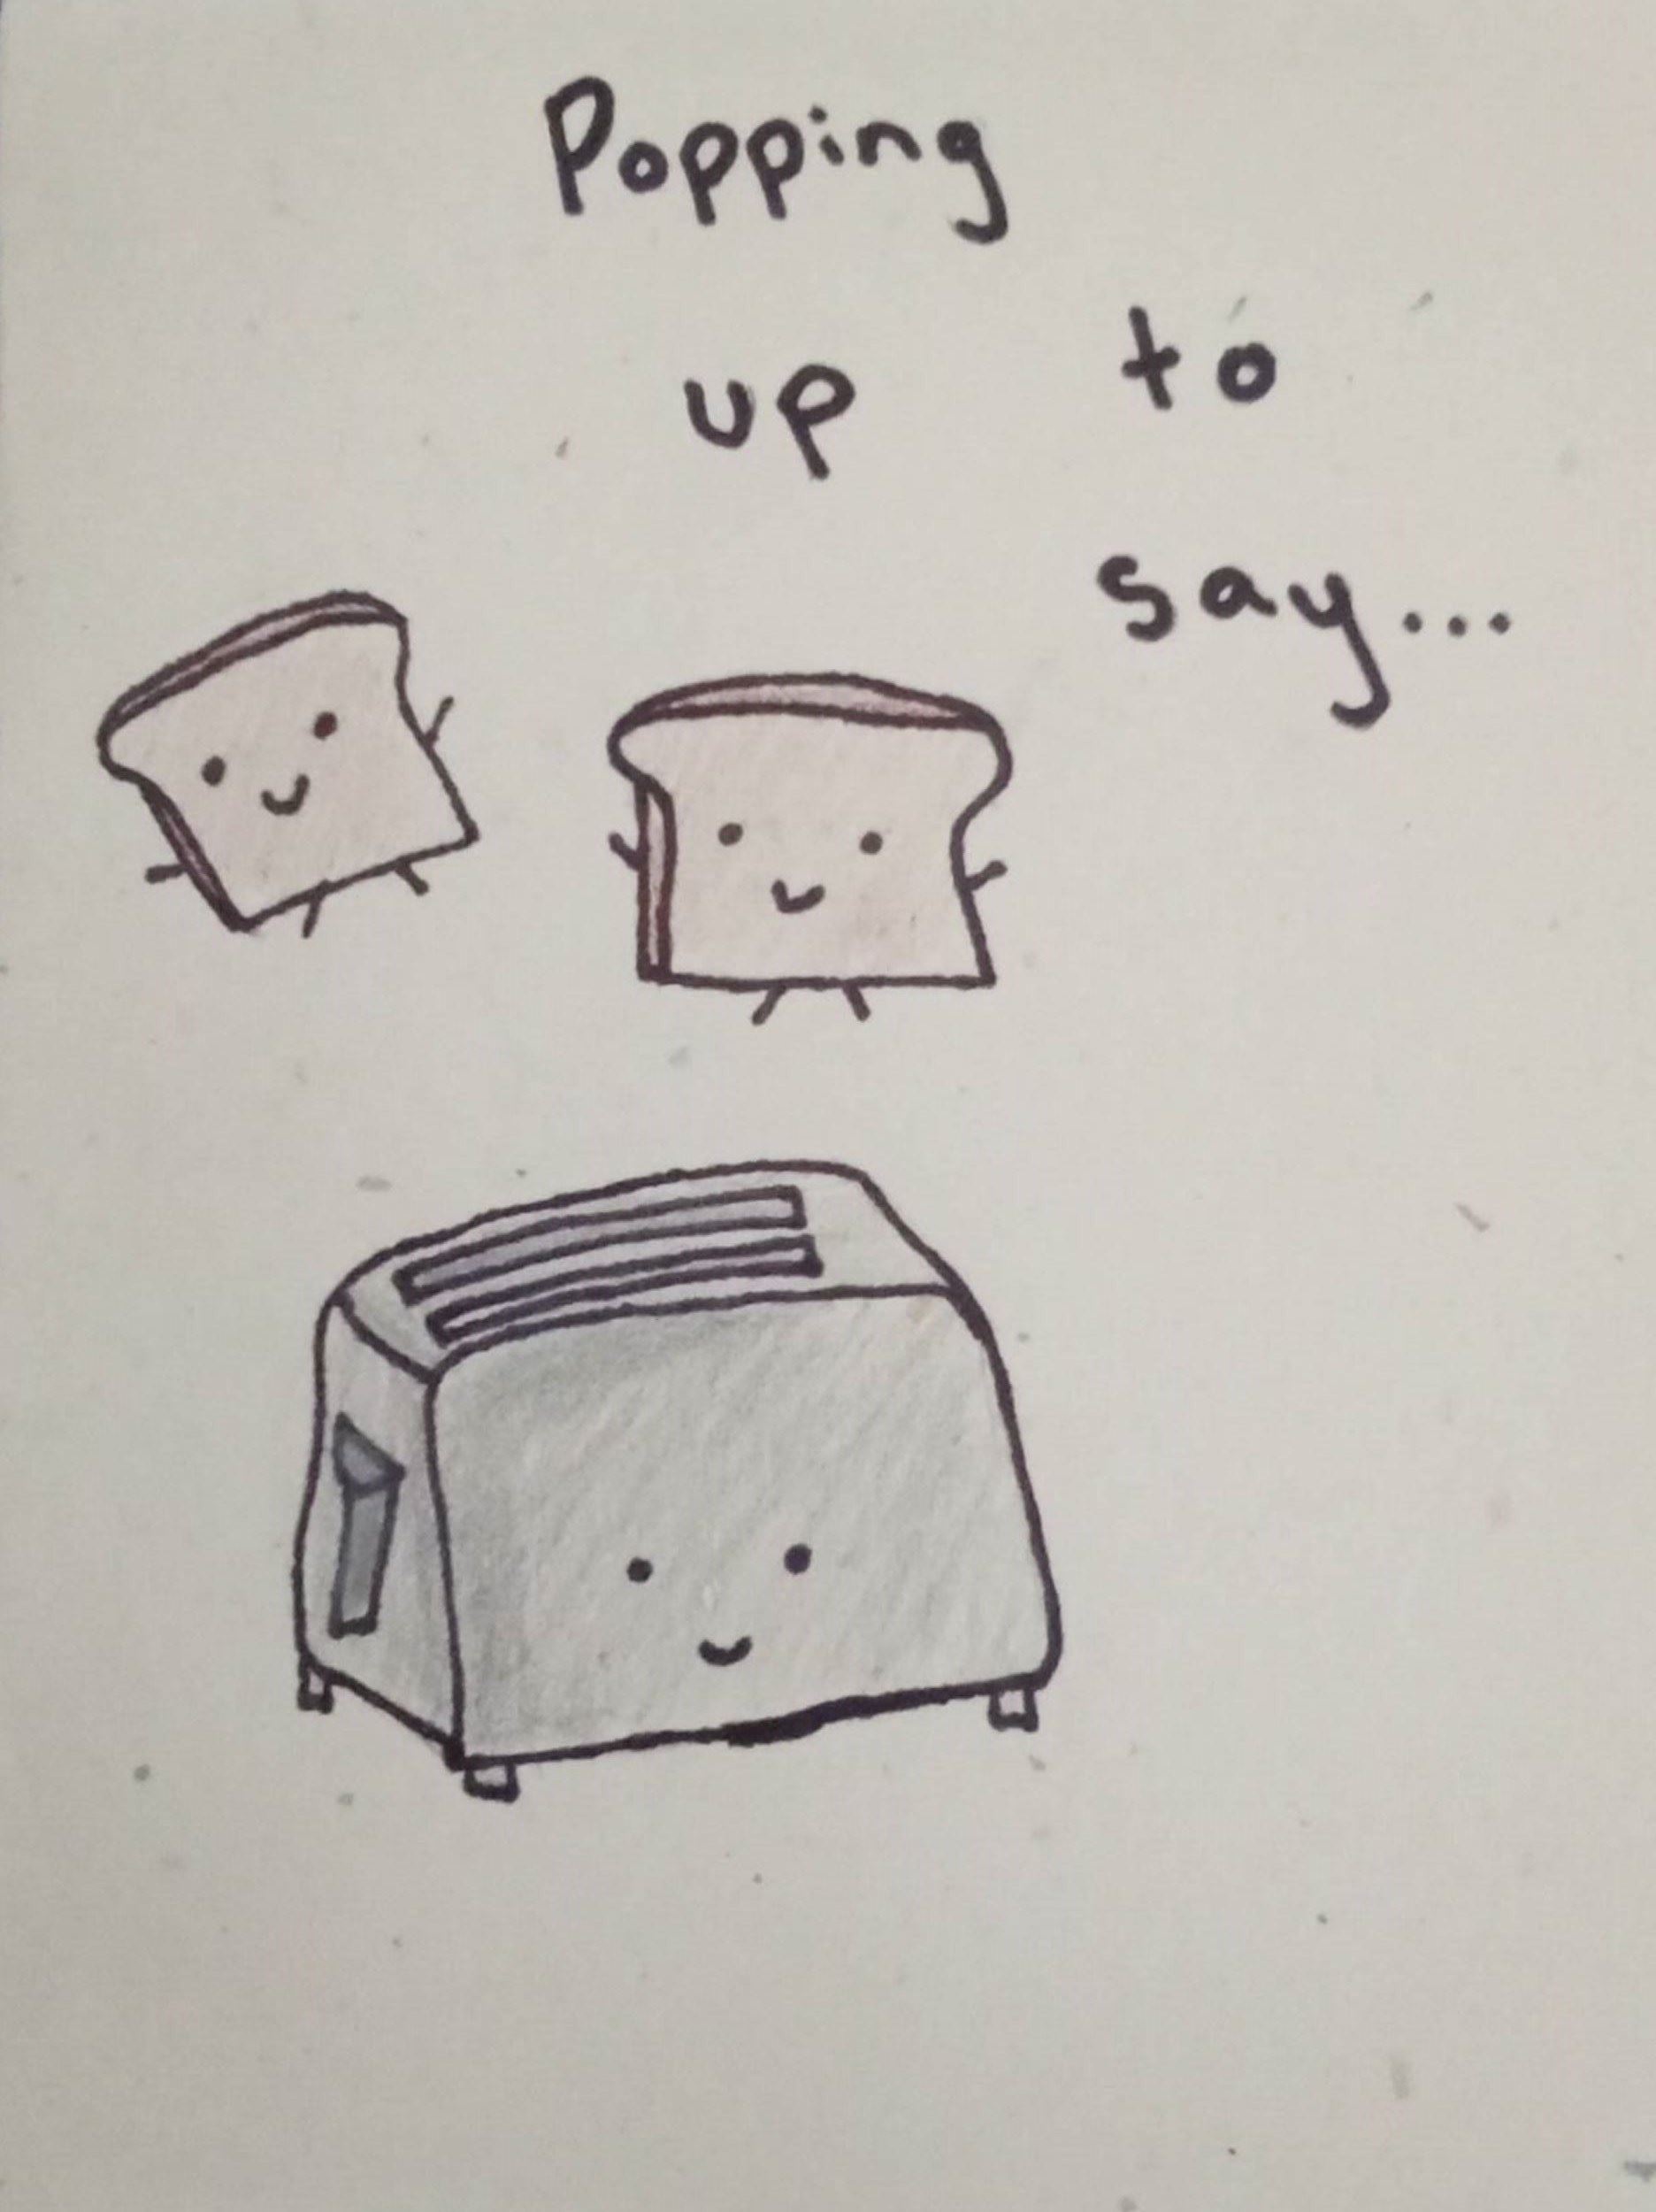 Popping
up to
say...